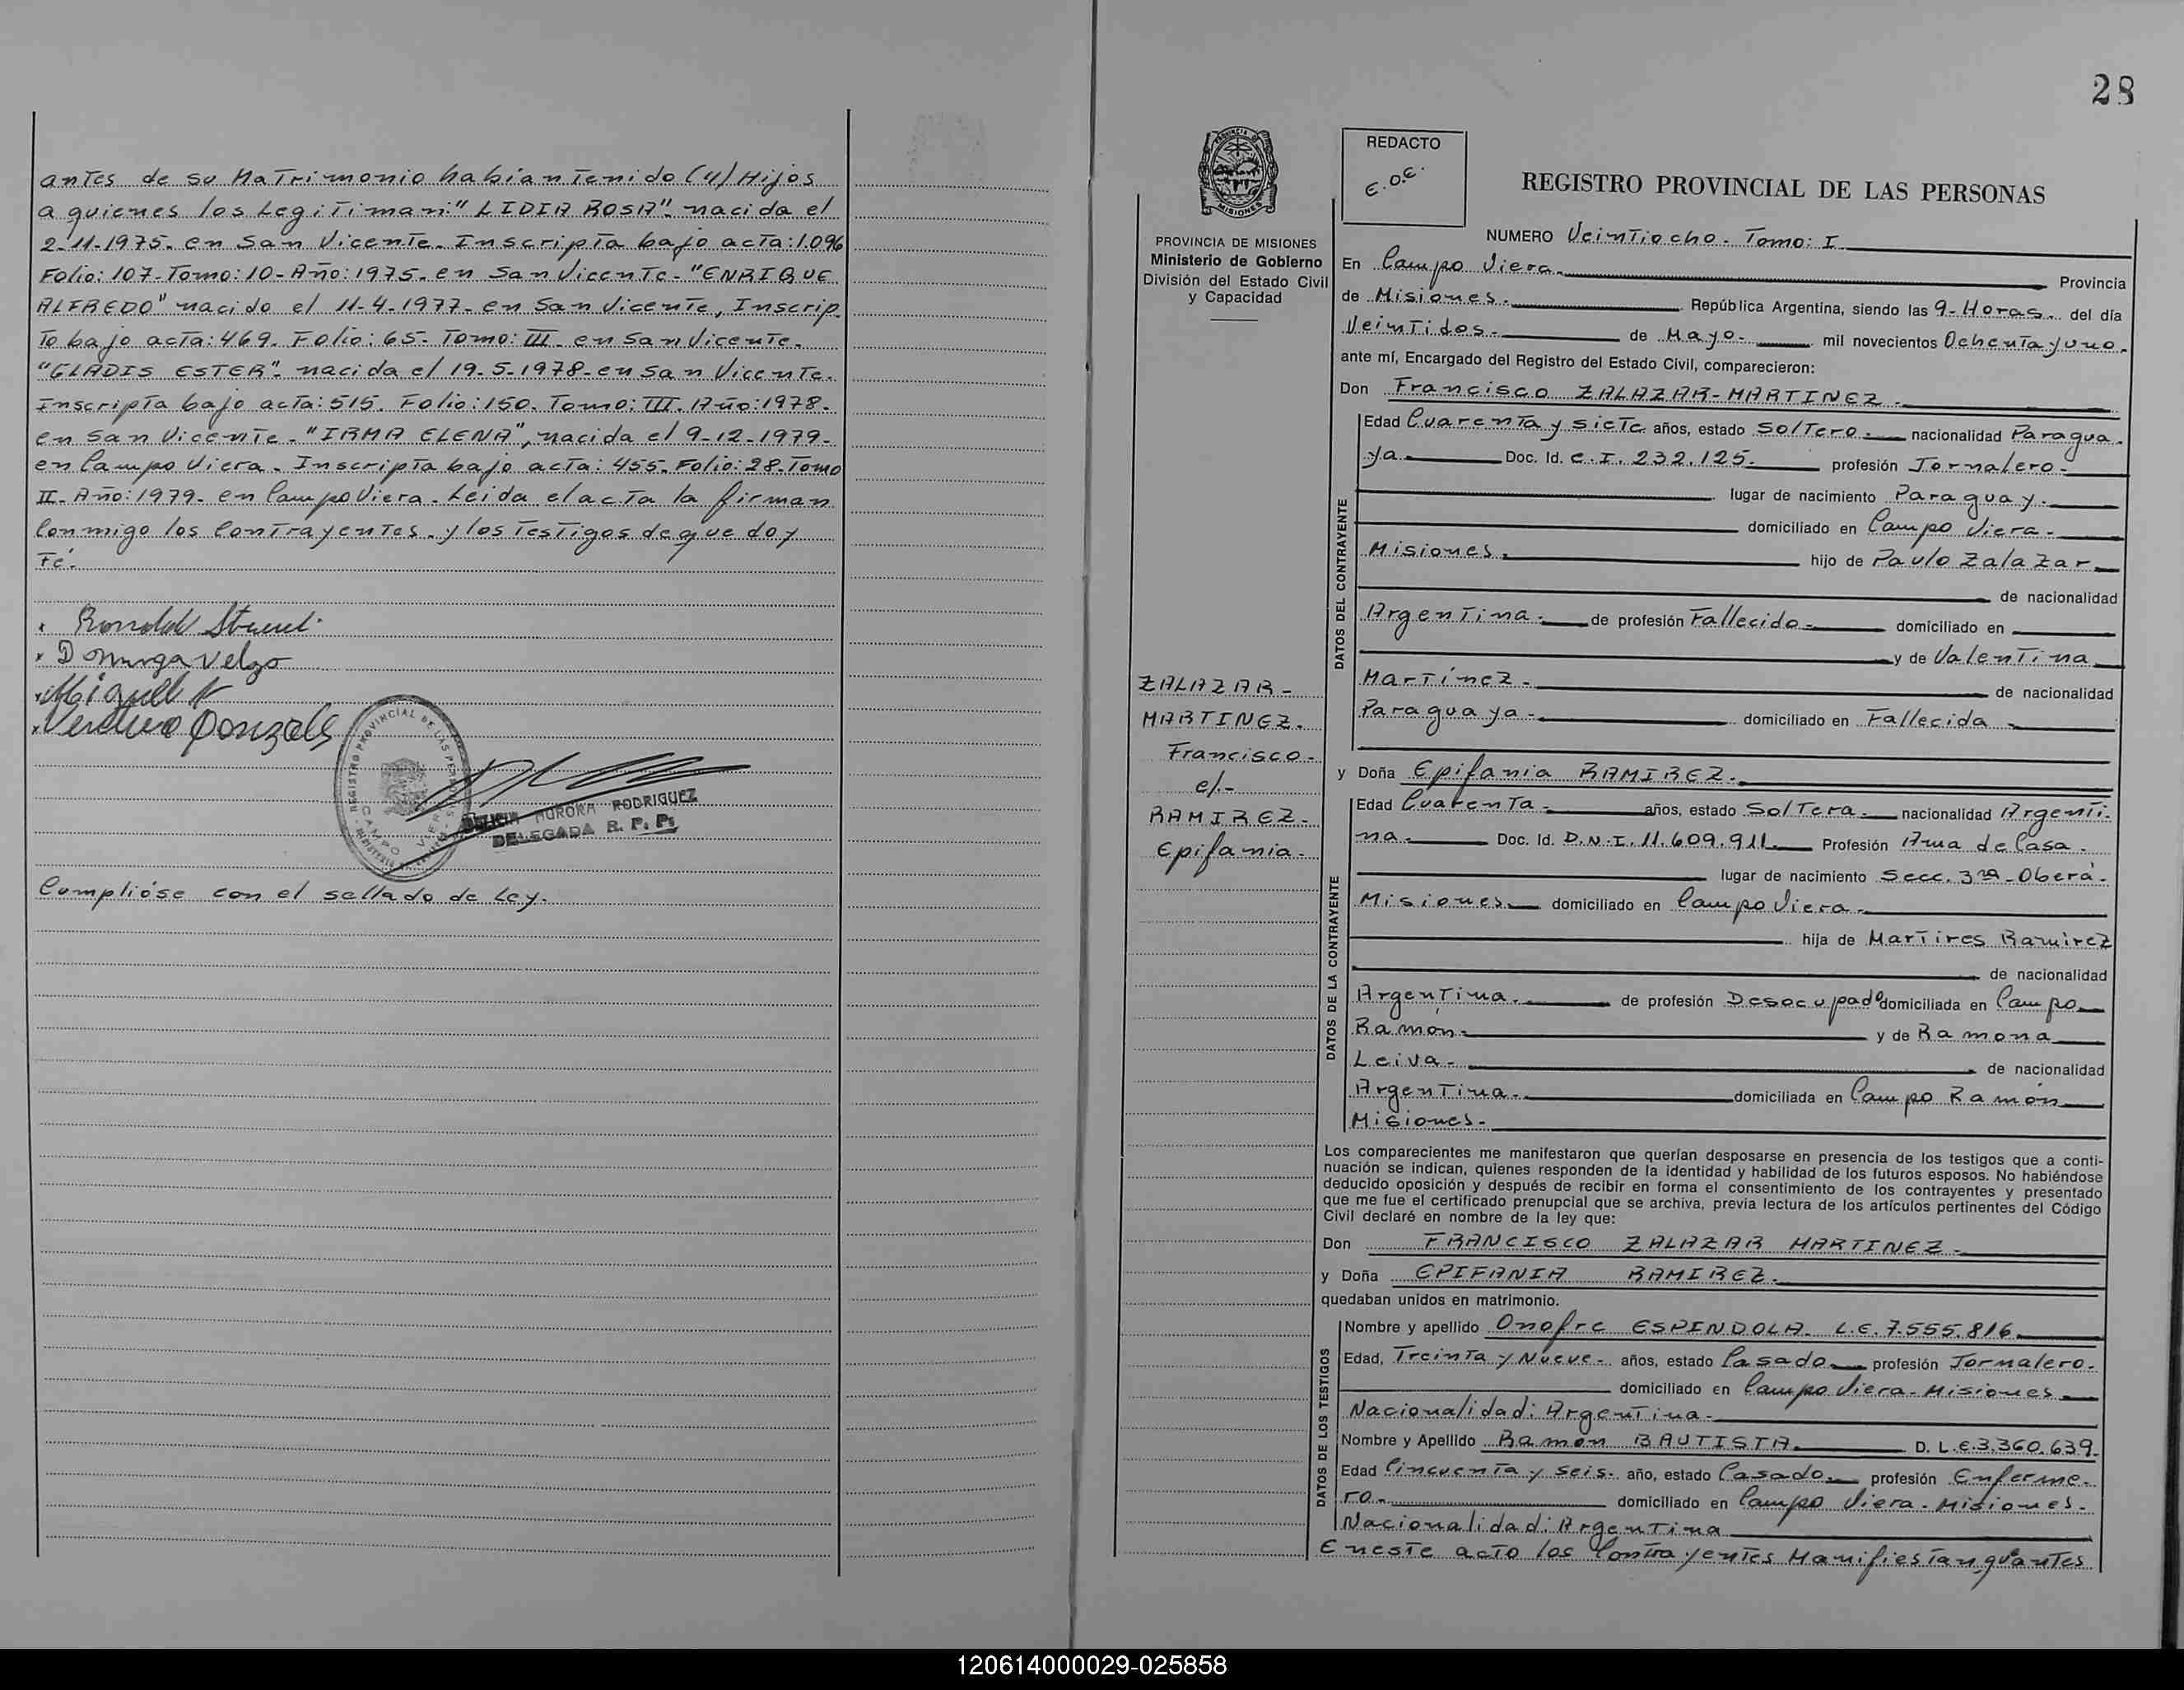 antes de su Matrimonio habían tenido (4) Hijos
a quienes los Legitiman: "LIDIA ROSA". nacida el
2-11-1975. en San Vicente. Inscripta bajo acta: 1.096
Folio: 107-Tomo: 10-Año: 1975. en San Vicente - "ENRIQUE
ALFREDO" nacido el 11-4-1977- en San Vicente, Inscrip.
to bajo acta: 469. Folio: 65- Tomo: III. en San Vicente.
"GLADIS ESTER". nacida el 19-5-1978- en San Vicente.
Inscripta bajo acta: 515. Folio: 150. Tomo: III. Año: 1978.
en San Vicente. "IRMA ELENA", nacida el 9-12-1979-
en Campo Viera. Inscripta bajo acta: 455- Folio: 28. Tomo
II- Año: 1979- en Campo Viera. Leida el acta la firman
Conmigo los Contrayentes. y los Testigos de que doy
Fé.
Dominga Velzo
Miguel
Gonzales
REGISTRO PROVINCIAL DE LAS PERSONAS
CAMPO VIERA
AURORA RODRIGUEZ
DELEGADA R. P. P.
Cumplióse con el sellado de Ley.
28
REDACTO
E.O.E.
MISIONES
PROVINCIA DE MISIONES
Ministerio de Gobierno
División del Estado Civil
y Capacidad
ZALAZAR -
MARTINEZ.
Francisco -
c/.-
RAMIREZ -
Epifania -
REGISTRO PROVINCIAL DE LAS PERSONAS
NUMERO Veintiocho. Tomo: I
En Campo Viera. Provincia
de Misiones. República Argentina, siendo las 9-Horas. del día
Veintidos. de Mayo. mil novecientos Ochenta y uno.
ante mí, Encargado del Registro del Estado Civil, comparecieron:
Don Francisco ZALAZAR-MARTINEZ.
DATOS DEL CONTRAYENTE
Edad Cuarenta y siete años, estado Soltero. nacionalidad Paragua.
ya. Doc. Id. C.I. 232.125. profesión Jornalero.
lugar de nacimiento Paraguay.
domiciliado en Campo Viera.
Misiones. hijo de Paulo Zalazar
de nacionalidad
Argentina. de profesión Fallecido. domiciliado en
y de Valentina
Martínez. de nacionalidad
Paraguaya. domiciliado en Fallecida
y Doña Epifania RAMIREZ.
DATOS DE LA CONTRAYENTE
Edad Cuarenta. años, estado Soltera. nacionalidad Argenti.
na. Doc. Id. D.N.I. 11.609.911. Profesión Ama de Casa.
lugar de nacimiento Secc. 3ra - Oberá.
Misiones domiciliado en Campo Viera.
hija de Martires Ramirez
de nacionalidad
Argentina. de profesión Desocupado domiciliada en Campo
Ramón. y de Ramona
Leiva. de nacionalidad
Argentina. domiciliada en Campo Ramón
Misiones.
Los comparecientes me manifestaron que querían desposarse en presencia de los testigos que a conti-
nuación se indican, quienes responden de la identidad y habilidad de los futuros esposos. No habiéndose
deducido oposición y después de recibir en forma el consentimiento de los contrayentes y presentado
que me fue el certificado prenupcial que se archiva, previa lectura de los artículos pertinentes del Código
Civil declaré en nombre de la ley que:
Don FRANCISCO ZALAZAR MARTINEZ.
y Doña EPIFANIA RAMIREZ.
quedaban unidos en matrimonio.
DATOS DE LOS TESTIGOS
Nombre y apellido Onofre ESPINDOLA. L.E. 7.555.816.
Edad, Treinta y Nueve. años, estado Casado profesión Jornalero.
domiciliado en Campo Viera. Misiones
Nacionalidad: Argentina.
Nombre y Apellido Ramón BAUTISTA. D. L.E. 3.360.639.
Edad Cincuenta y seis. año, estado Casado. profesión Enferme.
ro. domiciliado en Campo Viera. Misiones.
Nacionalidad: Argentina
En este acto los Contrayentes Manifiestan, qu antes
120614000029-025858